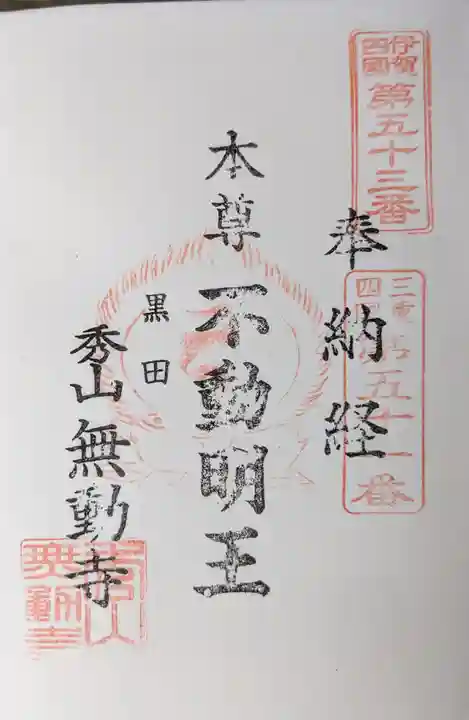 伊賀
四國
第五十三番
奉納経
本尊
不動明王
黒田
秀山無動寺